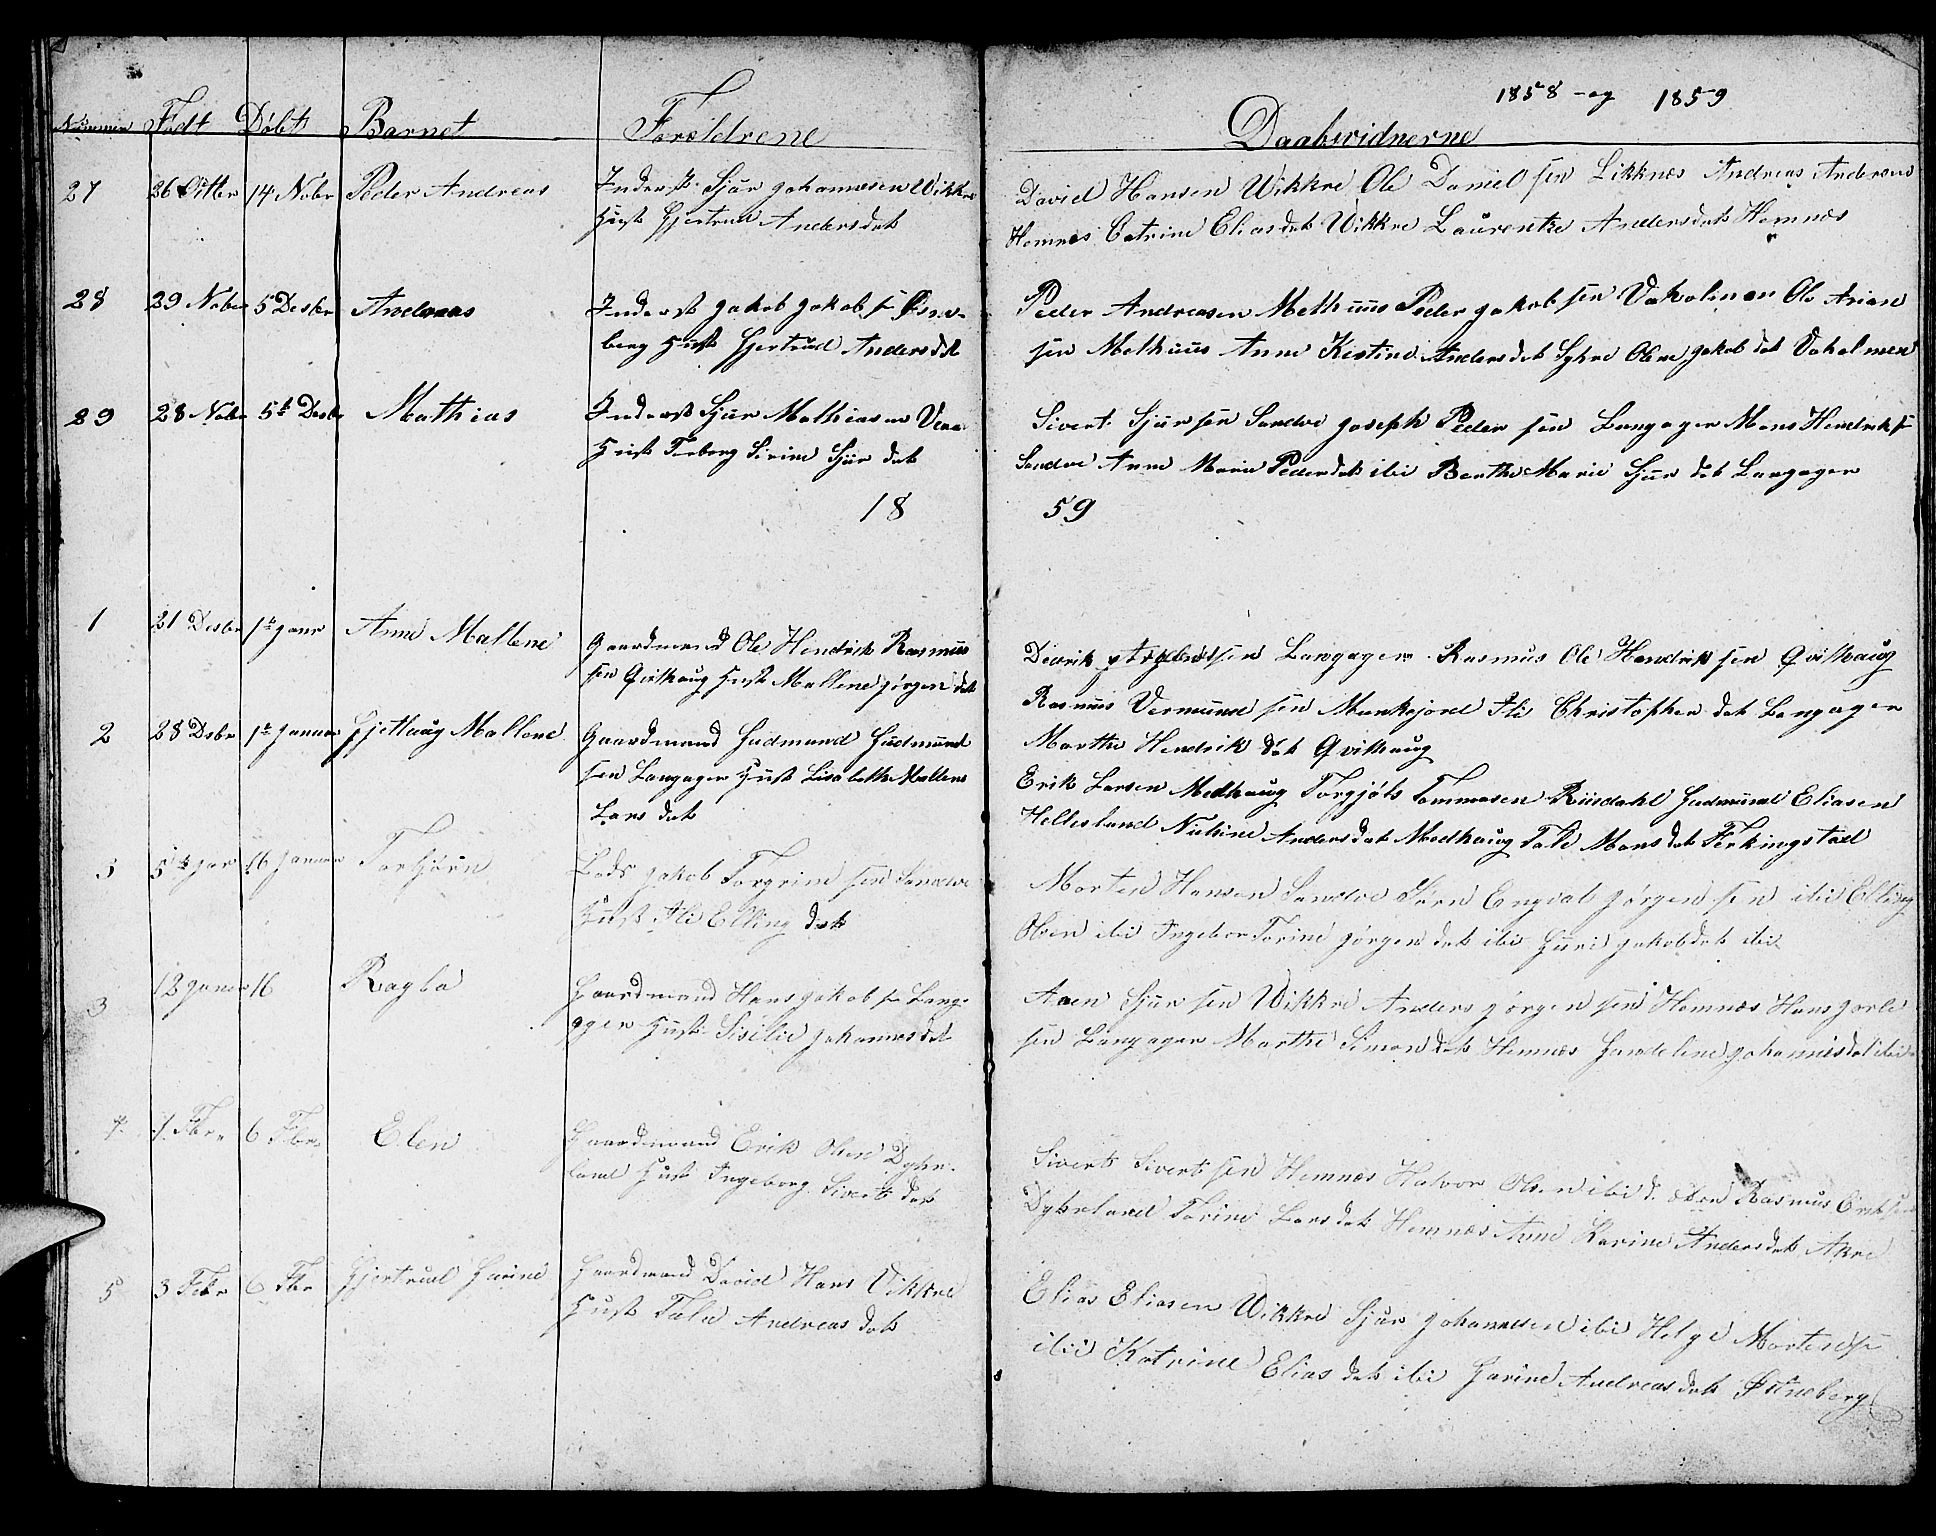 1858 - og 1859
Nummer Födt Döbt Barnet Forældrene Daabsvidnerne
27 26 Octbr 14 Nobr Peder Andreas Inderst Sjur Johannesen Wikkre
Hust Gjertrud Andersdat
David Hansen Wikkre Ole Daniel sen Likknes Andreas Andersen
Hemnes Catrine Eliasdat Wikkre Laurentze Andersdat Hemnæs
28 29 Nobr 5 Desbr Andreas Inderst Jakob Jakob sen
berg Hust Gjertrud Andersdt
Peder Andreasen Melhuus Peder Jakob sen Vaholmen Ole Arian
sen Melhuus Anne Kestine Andersdat Syhre Olene Jakob dat Vaholmen
29 28 Nobr 5t Desbr Mathias Inderst Sjur Mathiasen
Hust Sirine Sjur dat
Sivert Sjursen Sandve Joseph Peder sen Langager Mons Hendriks
Sandve Anne Marie Pederdat ibi Berthe Marie Sjur dat Langager
18 59
1 21 Desbr 1t Janr Anne Mallene Gaardmand Ole Hendrik Rasmus
sen Qvilhaug Hust Mallene Jörgen dat
sen Langager Rasmus Ole Hendrik sen Qvilhaug
Rasmus Vermund sen Munkejord Ali Christopher dat Langager
Marthe Hendrik dat Qvilhaug
2 28 Desbr 1t Januar Gjetlaug Mallene Gaardmand Gudmund Gudmund
sen Langager Hust Lisabethe Mallene
Lars dat
Erik Larsen Medhaug Torgjöls Tommesen Risdahl Gudmund Eliasen
Hellesland Nichine Andersdat Medhaug Tale Monsdat Ferkingstad
3 5te Jar 16 Januar Torbjörn Jakob Torgrim sen Sandve
Hust Ali Elling dat
Morten Hansen Sandve Sörn Engval Jörgen sen ibi Elling
Olsen ibi Ingebor Torine Jörgen dat ibi Guri Jakobdat ibi
3 12 Januar 16 Ragla Gaardmand Hans Jakob sen Lang-
ager Hust Sisilie Johannesdat
Aaen Sjur sen Wikkre Anders Jörgen sen Hemnæs Hans
sen Langager Marthe Simon dat Hemnæs Gundeline Johannisdat ibi
4 1 Febr 6 Febr Elen Gaardmand Erik Olsen Dyhr-
land Hust Ingeborg Siverts dat
Siverts Siverts sen Hemnæs Halvor Olsen ibid Rasmus Eriksen
Dyhrland Torine Larsdat Hemnæs Anne Karine Andersdat Akre
5 3 Febr 6 Fbr Gjertrud Garine Gaardmand David Hans Vikkre
Hust Tale Andreas dat
Elias Eliasen Wikkre Sjur Johannesen ibi Helge Mortens
ibi Katrine Elias dat ibi Garine Andreas dat